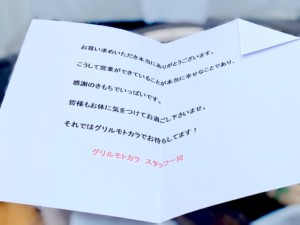 お買い求めいただき本当にありがとうございます。
こうして営業ができていることが本当に幸せなことであり、
感謝のきもちでいっぱいです。
皆様もお体に気をつけてお過ごし下さいませ。
それではグリルモトカラでお待ちしてます！
グリルモトカラ スタッフ一同